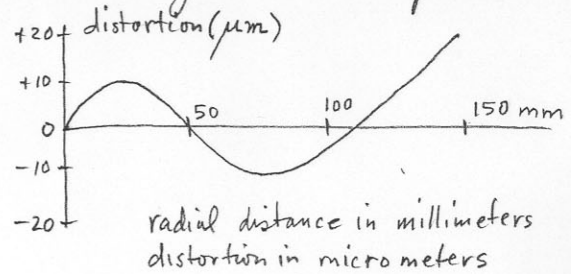 distortion (μm)
+20
+10
0
-10
-20
50
100
150 mm
radial distance in millimeters
distortion in micrometers